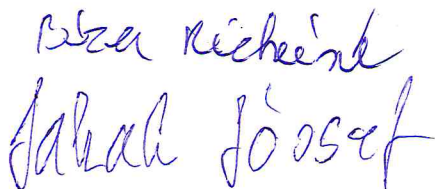 Búza Richárd
Jakab József